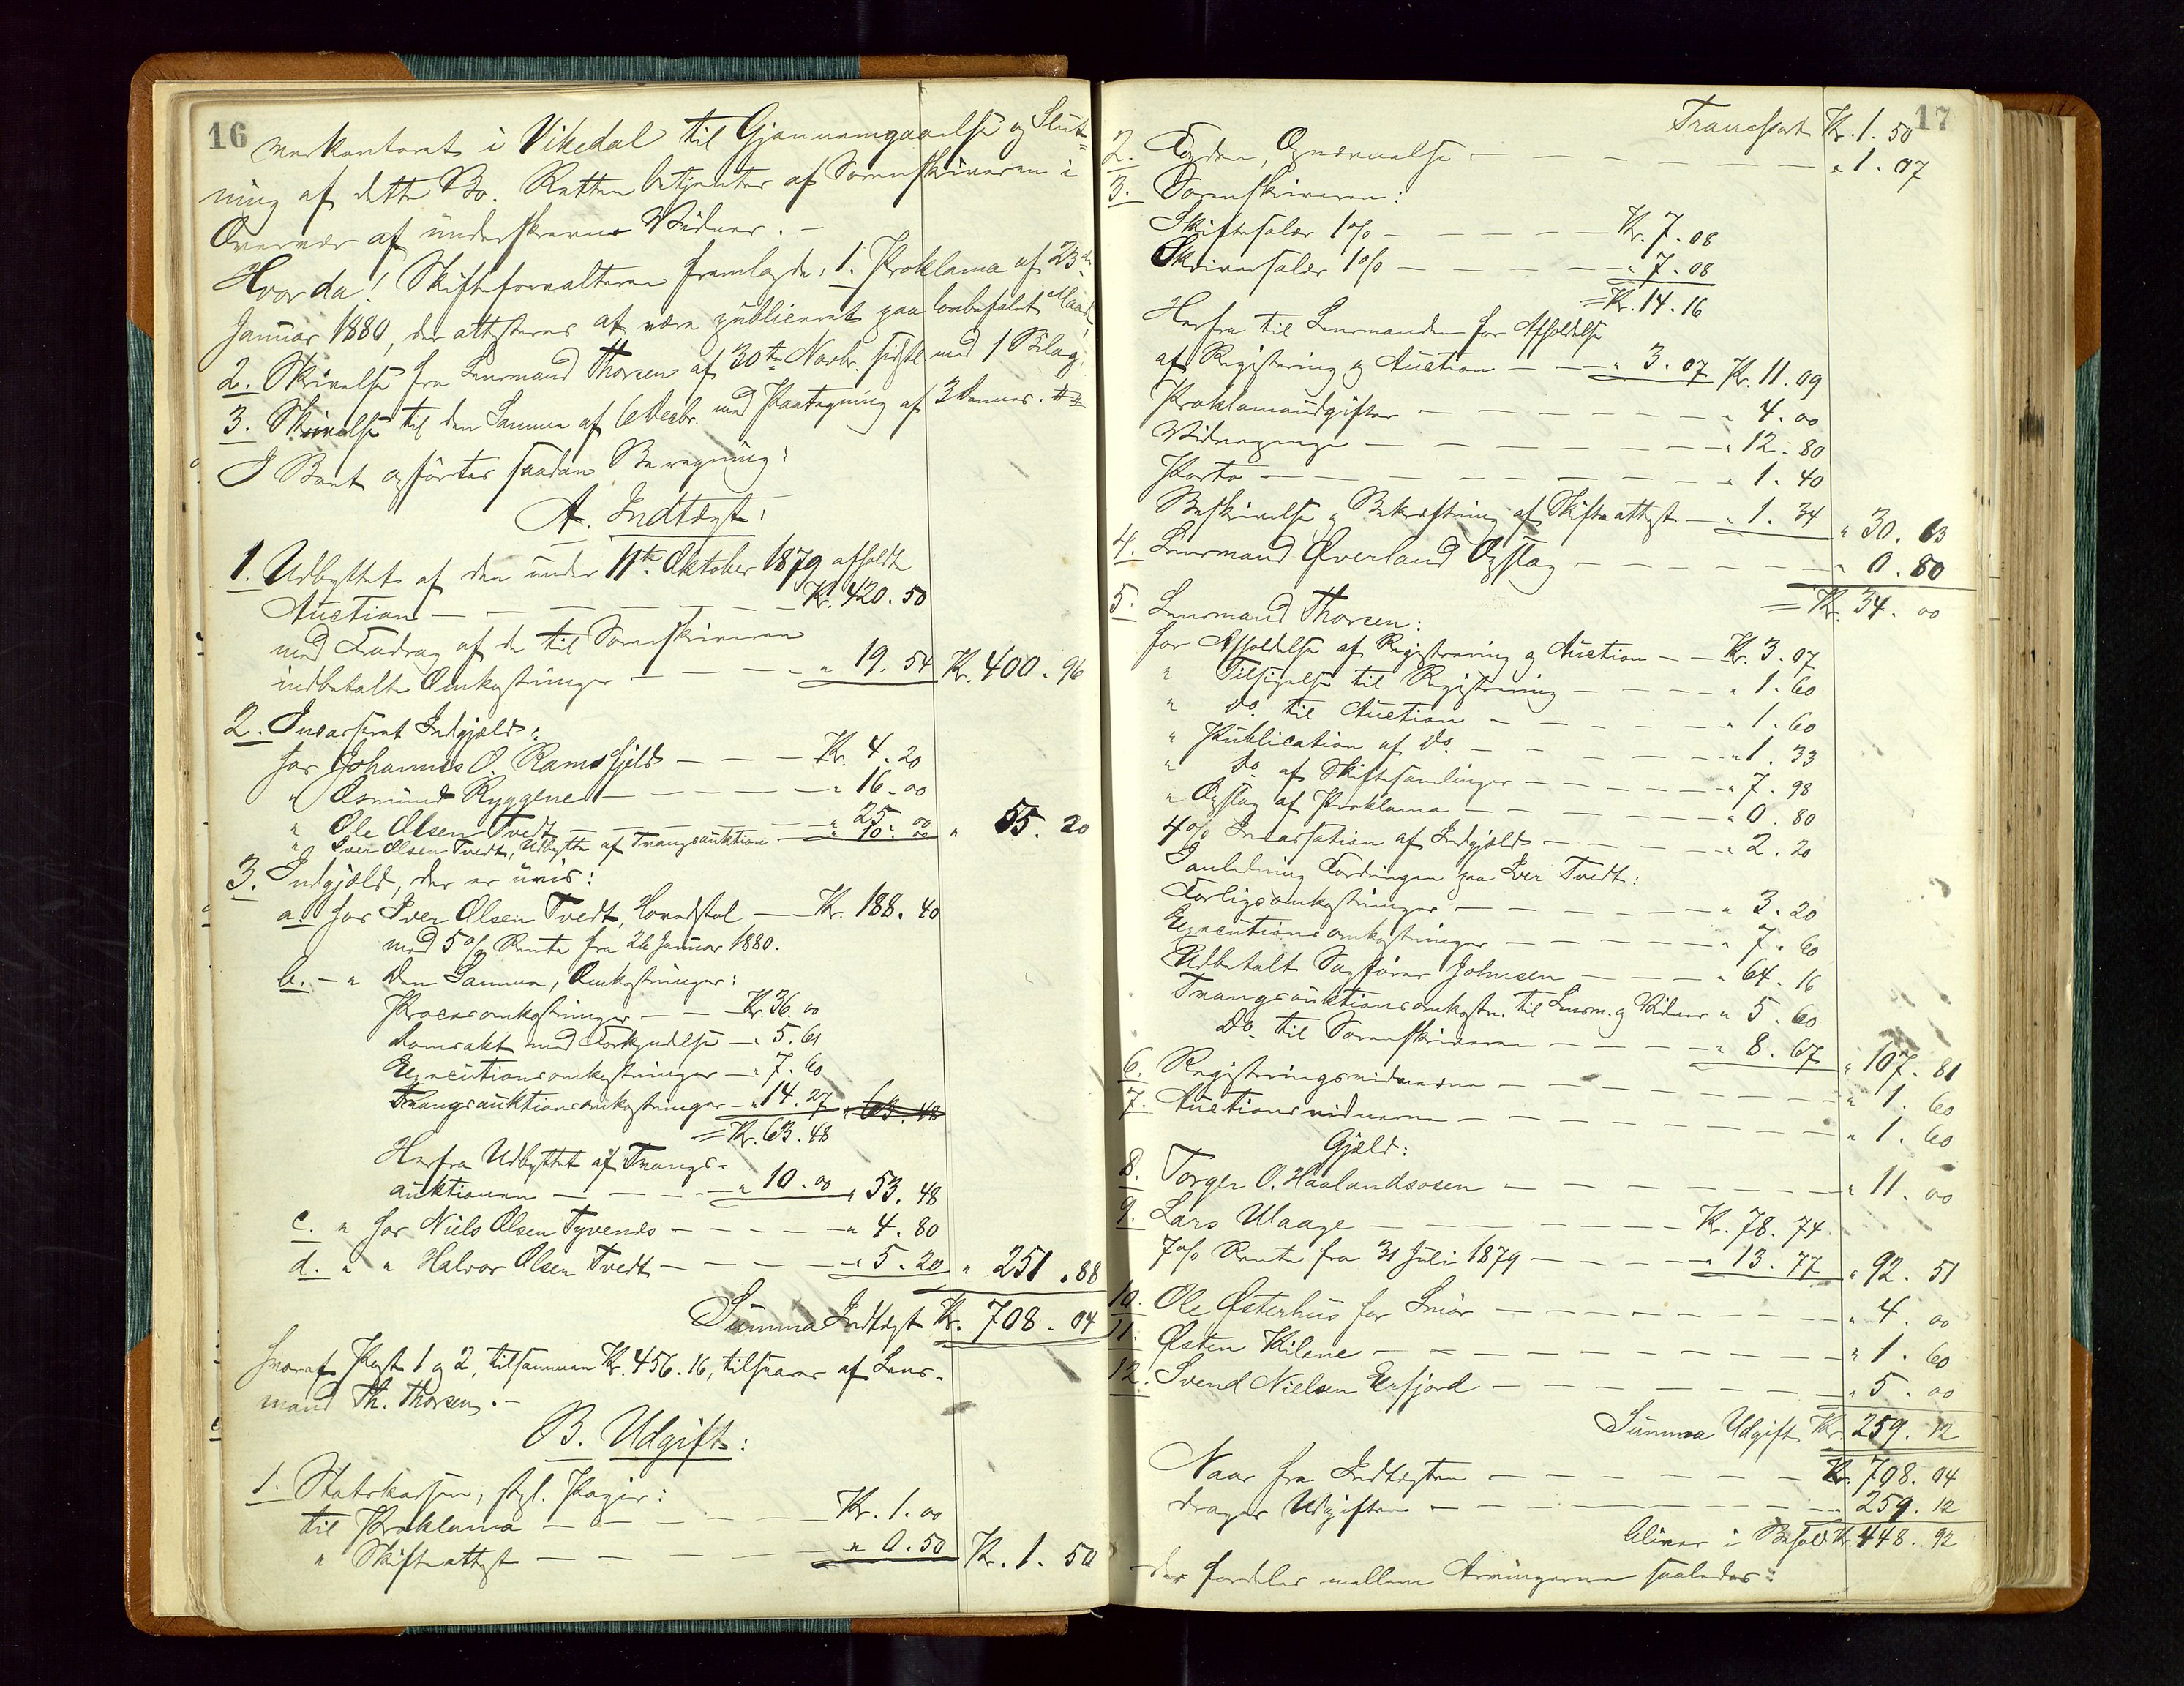 16
merkontoret i Vikedal til Gjennemgaaelse og Slut-
ning af dette Bo. Retten betjentes af Sorenskriveren i
Overvær af underskrevne Vidner. –
Hvorda! Skifteforvalteren fremlagde: 1. Proklama af 23de
Januar 1880, der attesteres at være publiceret paa lovbefalet Maade,
2. Skrivelse fra Lensmand Thorsen af 30te Novbr. sidstl. med 1 Bilag,
3. Skrivelse til den Samme af 6 Decbr. med Paategning af 3 Dennes.
I Boet opførtes saadan Beregning:
A. Indtægt:
1. Udbyttet af den under 11te Oktober 1879 afholdte
Auction — — — — — Kr. 420.50
med Fradrag af de til Sorenskriveren
indbetalte Omkostninger — — — " 19.54 Kr. 400.96
2. Incasseret Indgjæld:
for Johannes O. Ramsfjeld — — — Kr. 4.20
" Asmund Ryggene — — — — " 16.00
" Ole Olsen Tvedt — — — — " 25.00
" Iver Olsen Tvedt, Udbytte af Tvangsauktion — " 10.00 " 55.20
3. Indgjæld, der er uvis:
a. for Iver Olsen Tvedt, Hovedstol — Kr. 188.40
med 5% Rente fra 26 Januar 1880.
b. — " den Samme, Omkostninger:
Procesomkostninger — — Kr. 36.00
Domsakt med Forkyndelse — " 5.61
Executionsomkostninger — " 7.60
Tvangsauktionsomkostninger — " 14.27 " 63.48
= Kr. 63.48
Herfra Udbyttet af Tvangs-
auktionen — — — — " 10.00 " 53.48
c. " for Niels Olsen Tyvenes — — — — " 4.80
d. " " Halvor Olsen Tvedt — — — — " 5.20 " 251.88
Summa Indtægt Kr. 708.04
hvoraf Post 1 og 2, tilsammen Kr. 456.16, tilsvares af Lens-
mand Th. Thorsen. –
B. Udgift:
1. Statskassen, stpl. Papir:
til Proklama — — — — Kr. 1.00
" Skifteattest — — — — " 0.50 Kr. 1.50
17
Transport Kr. 1.50
2. Fogden, Opnævnelse — — — — — " 1.07
3. Sorenskriveren:
Skiftesalær 1% — — — — Kr. 7.08
Skriversalær 1% — — — — " 7.08
= Kr. 14.16
Herfra til Lensmanden for Afholdelse
af Registrering og Auction — — " 3.07 Kr. 11.09
Proklamaudgifter — — — — — " 4.00
Vidnepenge — — — — — " 12.80
Porto — — — — — " 1.40
Beskrivelse og Bekræftning af Skifteattest — " 1.34 " 30.63
4. Lensmand Øverland Opslag — — — — " 0.80
= Kr. 34.00
5. Lensmand Thorsen:
for Afholdelse af Registrering og Auction — — Kr. 3.07
" Tilsigelse til Registrering — — — — " 1.60
" Do. til Auction — — — — " 1.60
" Publication af Do. — — — — " 1.33
" Do. af Skiftesamlinger — — — — " 7.98
" Opslag af Proklama — — — — " 0.80
4% Incassation af Indgjæld — — — — " 2.20
I anledning Fordringen paa Iver Tvedt:
Forligsomkostninger — — — — — " 3.20
Executionsomkostninger — — — — " 7.60
Udbetalt Sagfører Johnsen — — — " 64.16
Tvangsauktionsomkostn. til Lensm. og Vidner " 5.60
Do. til Sorenskriveren — — — — " 8.67 " 107.81
6. Registreringsvidnerne — — — — — " 1.60
7. Auctionsvidnerne — — — — — " 1.60
Gjæld:
8. Torger O. Haalandsosen — — — — — " 11.00
9. Lars Waage — — — — Kr. 78.74
7% Rente fra 31 Juli 1879 — — — — " 13.77 " 92.51
10. Ole Østerhus for Snør — — — — — " 4.00
11. Østen Kilene — — — — — " 1.60
12. Svend Nielsen Erfjord — — — — — " 5.00
Summa Udgift Kr. 259.12
Naar fra Indtægten — — — — — Kr. 708.04
drages Udgiften — — — — — " 259.12
bliver i Behold Kr. 448.92
der fordeles mellem Arvingerne saaledes: